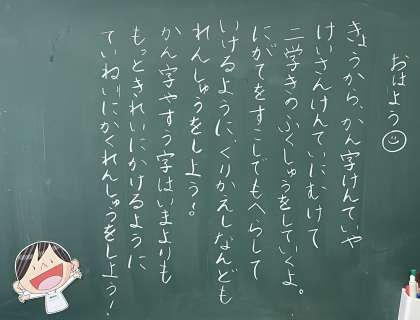 おはよう
きょうから、かん字けんていや
けいさんけんていにむけて
二学きのふくしゅうをしていくよ。
にがてをすこしでもへらして
いけるようにくりかえしなんども
れんしゅうをしよう!
かん字やすう字はいまよりも
もっときれいにかけるように
ていねいにかくれんしゅうをしよう!